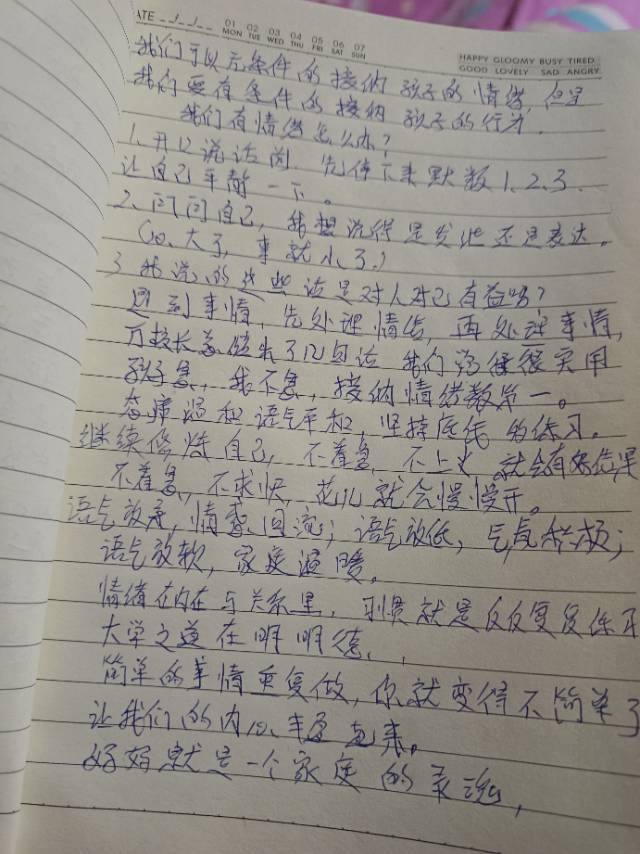 ATE
01 MON 02 TUE 03 WED 04 THU 05 FRI 06 SAT 07 SUN
HAPPY GLOOMY BUSY TIRED
GOOD LOVELY SAD ANGRY
我们可以无条件的接纳孩子的情绪,但是
我们要有条件的接纳孩子的行为.
我们有情绪怎么办?
1.开口说话前,先停下来默数1、2、3.
让自己平静一下。
2、问问自己,我想说得是发泄还是表达。
(心大了,事就小了.)
3.我说的这些话是对人对己有益吗?
遇到事情,先处理情绪,再处理事情,
校长总结出了12句话 我们 很实用
孩子急,我不急,接纳情绪数第一。
态度温和语气平和,坚持底线 的练习。
继续修炼自己,不着急,不上火 就会有好结果
不着急,不求快,花儿就会慢慢开。
语气放柔,情爱回流;语气放低,气氛积极;
语气放软,家庭温暖。
情绪在内在与关系里,习惯就是反反复复练习
大学之道在明明德,
简单的事情重复做,你就变得不简单了
让我们的内心丰盈起来。
妈妈就是一个家庭的灵魂,